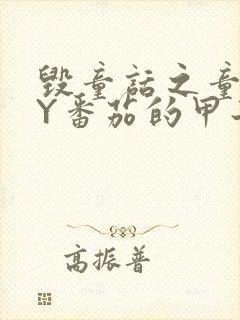 毁童话之童
Y番茄的甲
高振普